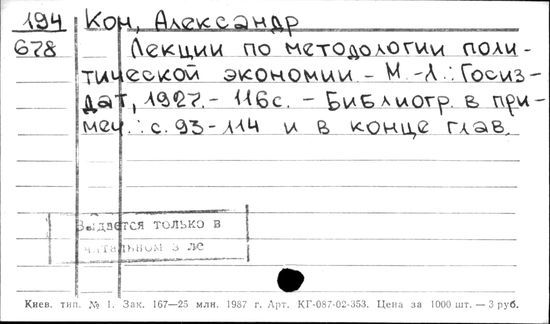 194 Кон, Александр
678 Лекции по методологии поли-
тической экономии - М.-Л.: Госиз-
дат, 1927.- 116с. - Библиогр. в при-
меч.: с. 93-114 и в конце глав.
Выдается только в
читальном з ле
Киев. тип. № 1. Зак. 167—25 млн. 1987 г. Арт. КГ-087-02-353. Цена за 1000 шт. — 3 руб.